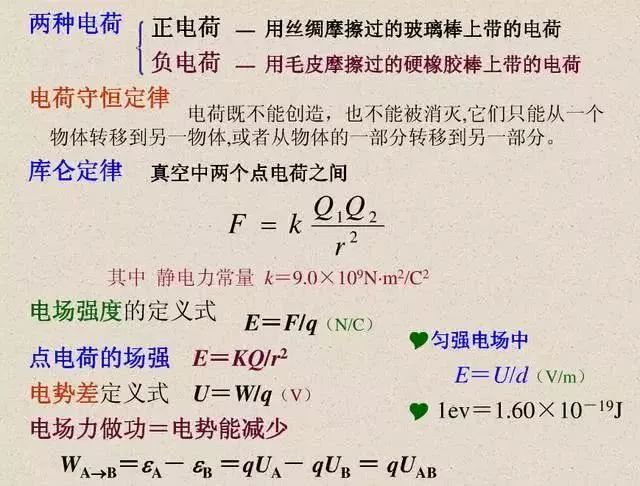 两种电荷 { 正电荷 — 用丝绸摩擦过的玻璃棒上带的电荷
负电荷 — 用毛皮摩擦过的硬橡胶棒上带的电荷
电荷守恒定律 电荷既不能创造，也不能被消灭,它们只能从一个
物体转移到另一物体,或者从物体的一部分转移到另一部分。
库仑定律 真空中两个点电荷之间
F = k Q₁Q₂ / r²
其中 静电力常量 k＝9.0×10⁹N·m²/C²
电场强度的定义式 E＝F/q（N/C）
点电荷的场强 E＝KQ/r²
电势差定义式 U＝W/q（V）
电场力做功＝电势能减少
W_A→B＝ε_A－ ε_B＝qU_A－ qU_B = qU_AB
匀强电场中
E＝U/d（V/m）
1ev＝1.60×10⁻¹⁹J